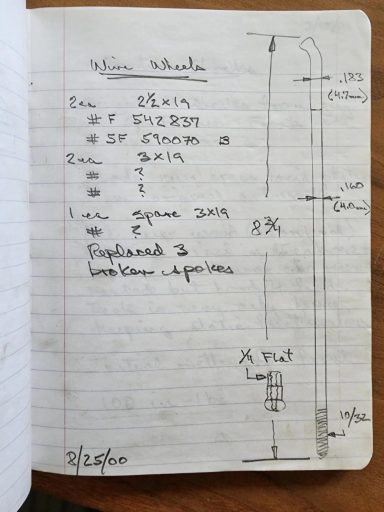 Wire Wheels
2ea 2½ x 19
# F 542837
# 5F 590070 B
2ea 3 x 19
# ?
# ?
1 ea spare 3x19
# ?
Replaced 3
broken spokes
8/25/00
.183
(4.7mm)
.160
(4.0mm)
8 3/4
1/4 Flat
10/32